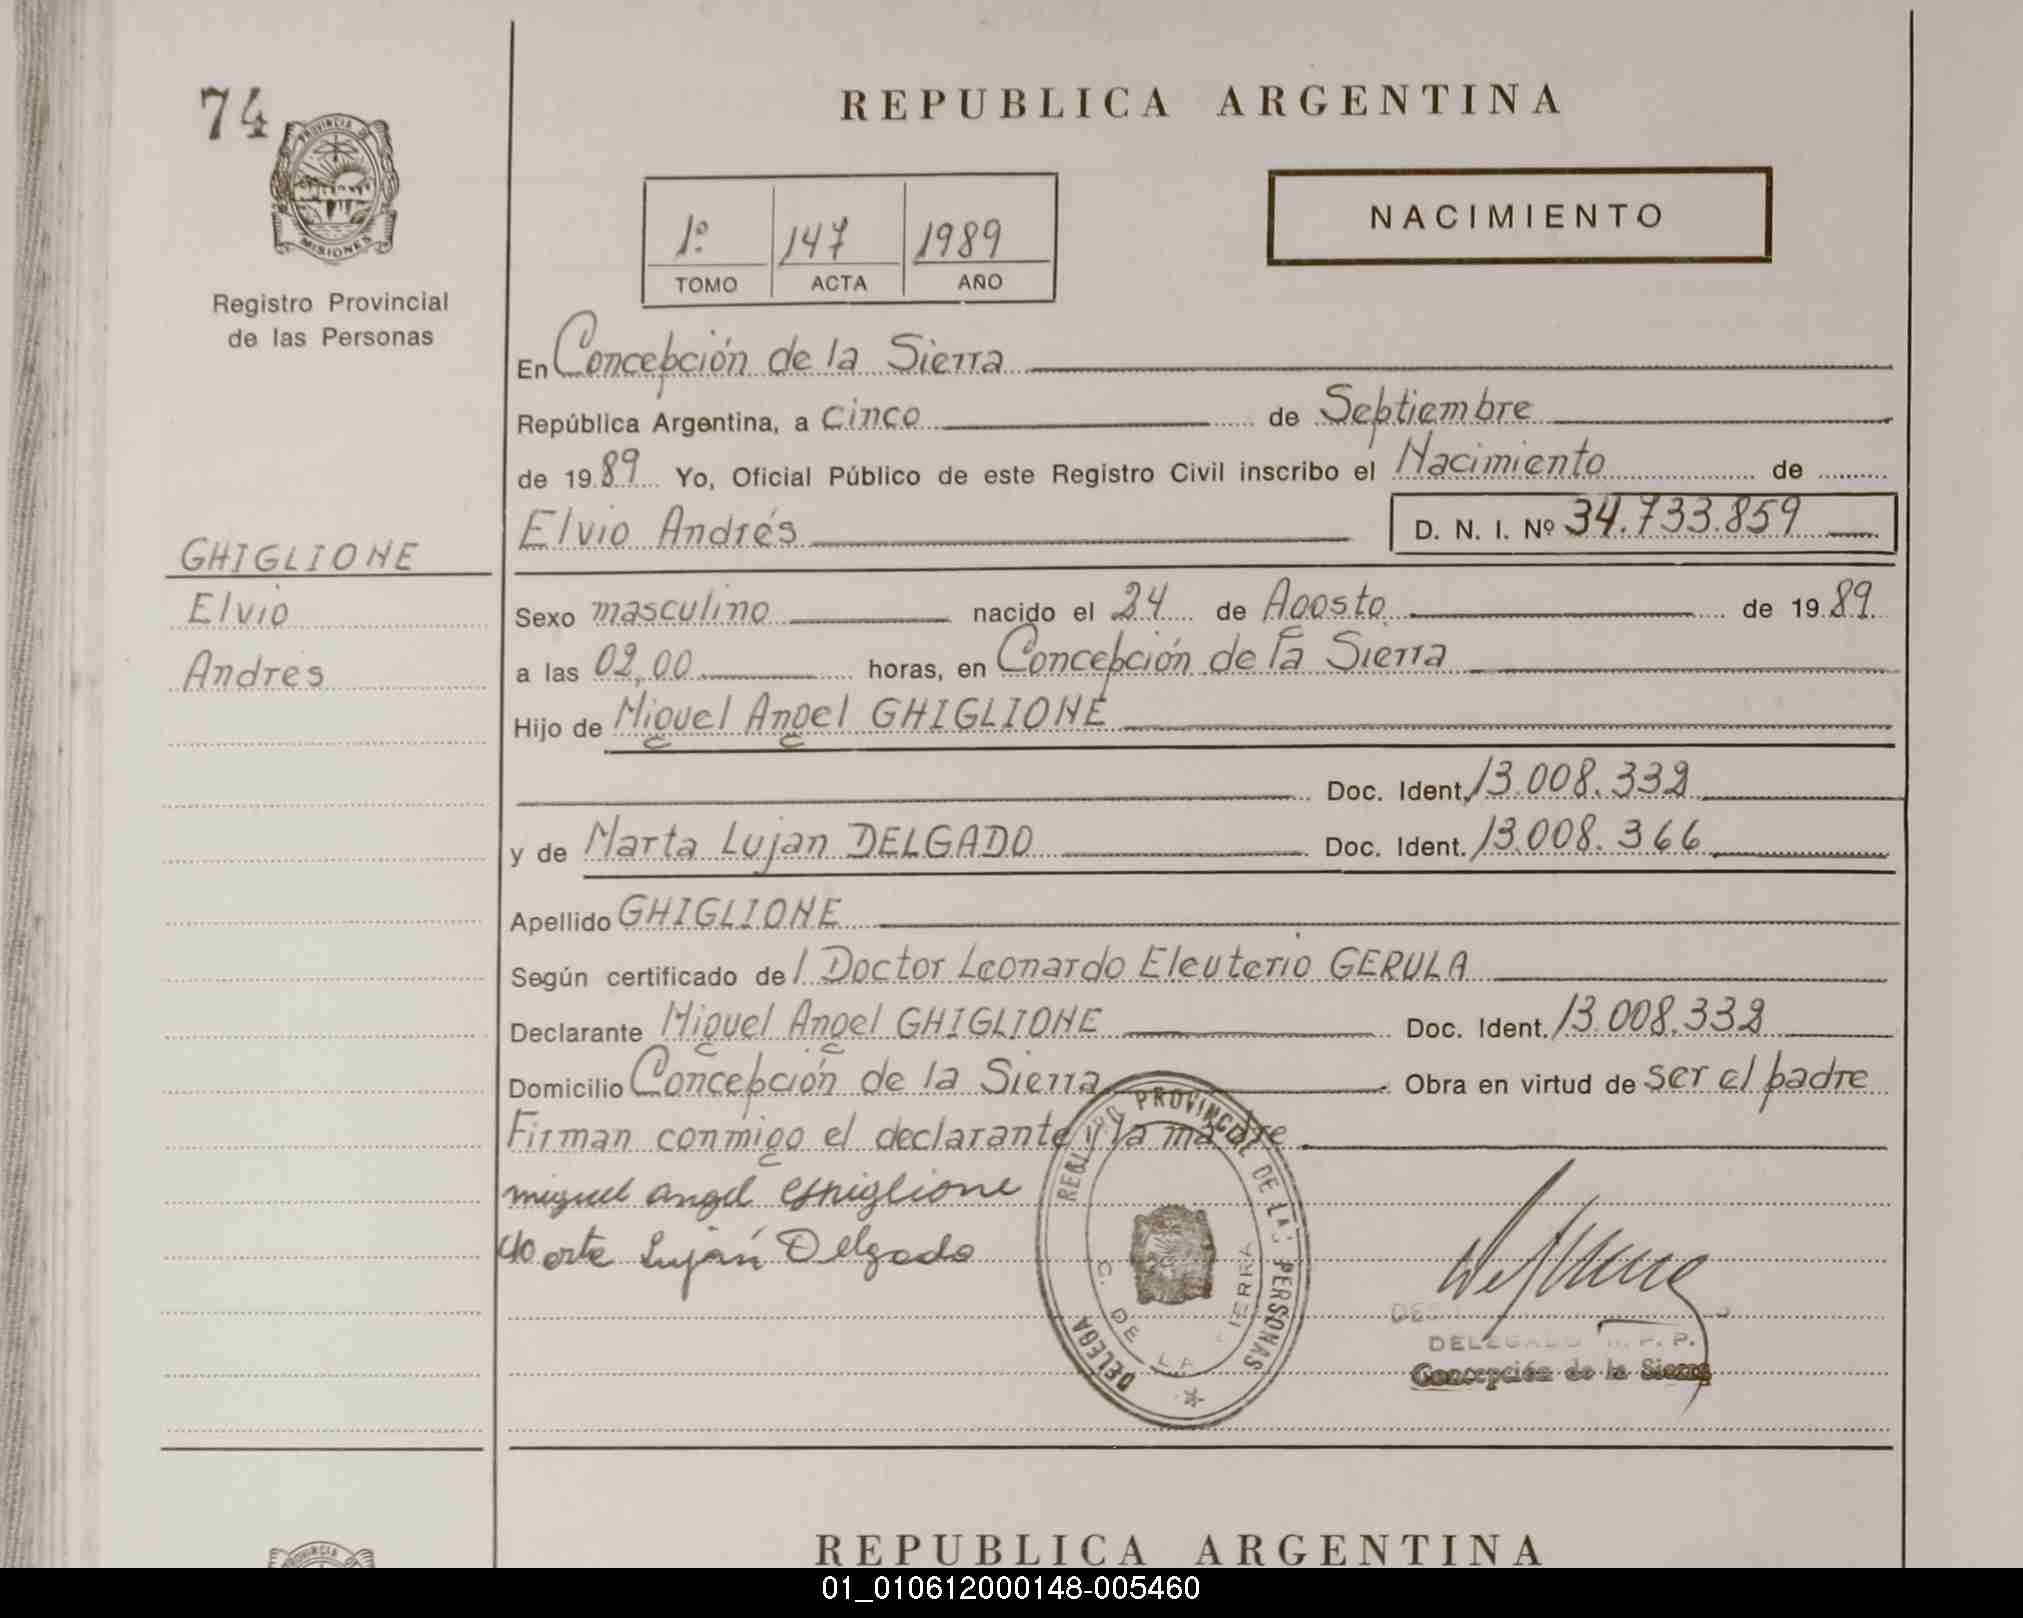 74
PROVINCIA DE
MISIONES
Registro Provincial
de las Personas
GHIGLIONE
Elvio
Andrés
REPUBLICA ARGENTINA
1º 147 1989
TOMO ACTA AÑO
NACIMIENTO
En Concepción de la Sierra
República Argentina, a cinco de Septiembre
de 1989 Yo, Oficial Público de este Registro Civil inscribo el Nacimiento de
Elvio Andrés D. N. I. Nº 34.733.859
Sexo masculino nacido el 24 de Agosto de 1989
a las 02,00 horas, en Concepción de la Sierra
Hijo de Miguel Angel GHIGLIONE
Doc. Ident. 13.008.332
y de Marta Lujan DELGADO Doc. Ident. 13.008.366
Apellido GHIGLIONE
Según certificado del Doctor Leonardo Eleuterio GERULA
Declarante Miguel Angel GHIGLIONE Doc. Ident. 13.008.332
Domicilio Concepción de la Sierra Obra en virtud de ser el padre
Firman conmigo el declarante y la madre
miguel angel Ghiglione
Marta Luján Delgado
REGISTRO PROVINCIAL DE LAS PERSONAS
DELEGA
C. DE LA SIERRA
DELEGADO R. P. P.
Concepción de la Sierra
REPUBLICA ARGENTINA
PROVINCIA DE
01_010612000148-005460